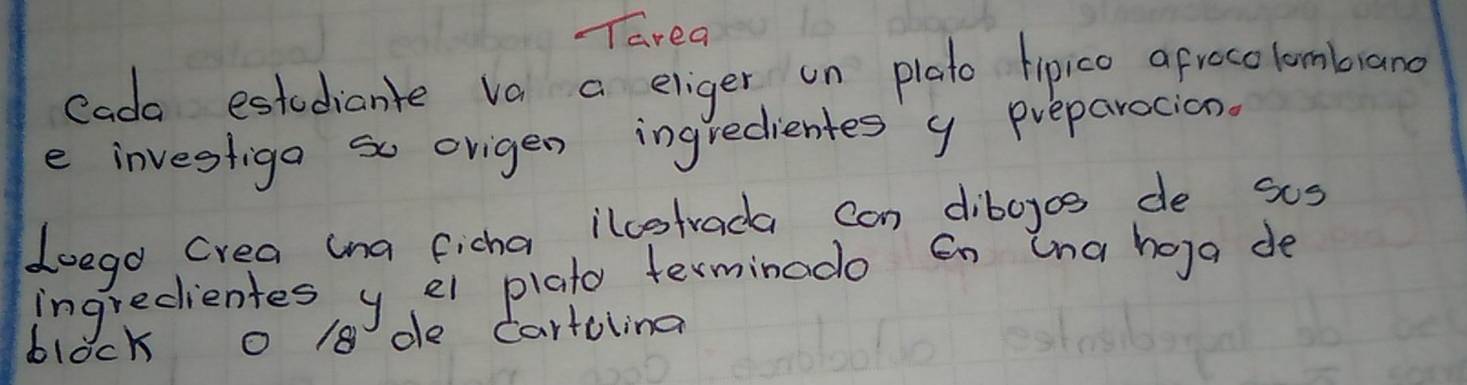 Tarea
Cada estudiante va a eliger un plato tipico afrocolombiano
e investiga su origen ingredientes y preparacion.
Luego crea una ficha ilustrada con dibujos de sus
ingredientes y el plato terminado en una hoja de
block o 1/8 de cartulina